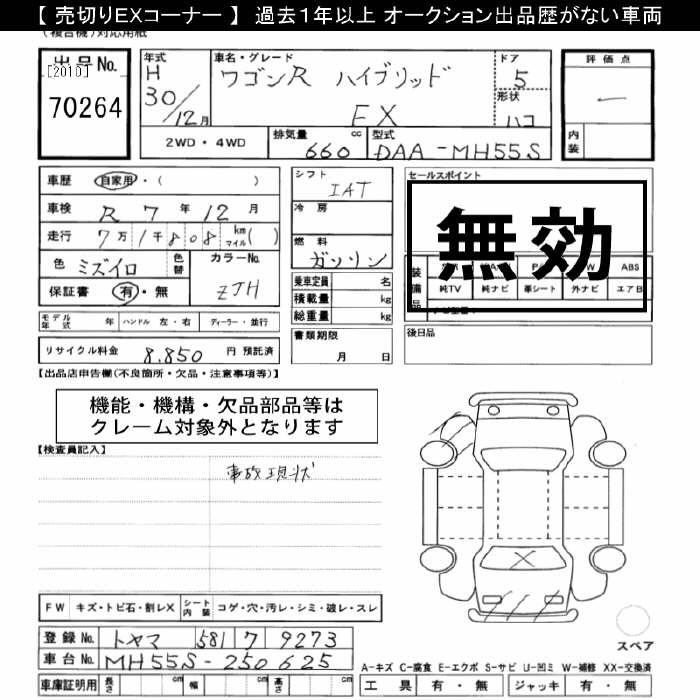 【 売切りEXコーナー 】 過去１年以上 オークション出品歴がない車両
(複合機)対応用紙
出品No.
[2010]
70264
年式
H
30/12月
車名・グレード
ワゴンR ハイブリッド
FX
ドア
5
形状
ハコ
評価点
一
内装
2WD・4WD
排気量
660
cc
型式
DAA-MH55S
車歴 自家用・( )
車検 R 7 年 12 月
走行 7万1千808 km マイル( )
色 ミズイロ
色替
カラーNo.
ZJH
保証書 有・無
シフト
IAT
冷房
燃料
ガソリン
乗車定員 名
積載量 kg
総重量 kg
書類期限
月 日
セールスポイント
無効
装備品
ABS
純TV 純ナビ 革シート 外ナビ エアB
後日品
モデル年式 年 ハンドル 左・右 ディーラー・並行
リサイクル料金 8.850 円 預託済
【出品店申告欄(不良箇所・欠品・注意事項等)】
機能・機構・欠品部品等は
クレーム対象外となります
【検査員記入】
事故現状
FW キズ・トビ石・割レX シート内装 コゲ・穴・汚レ・シミ・破レ・スレ
登録No. トヤマ 581 ワ 9273
車台No. MH55S-250625
スペア
A-キズ C-腐食 E-エクボ S-サビ U-凹ミ W-補修 XX-交換済
車庫証明用 長さ cm 幅 cm 高さ cm
工具 有・無 ジャッキ 有・無